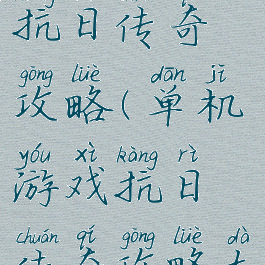 抗日传奇
gōng lüè dān jī
攻略(单机
yóu xì kàng rì
游戏抗日
chuán qí gōng lüè dà